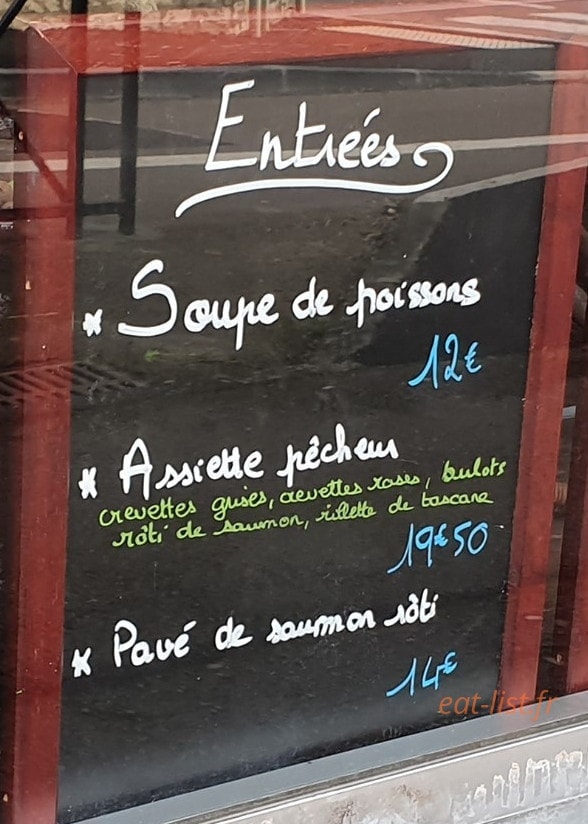 Entrées
* Soupe de poissons
12€
* Assiette pêcheur
crevettes grises, crevettes roses, bulots
rôti de saumon, rillette de toscane
19€50
* Pavé de saumon rôti
14€
eat-list.fr